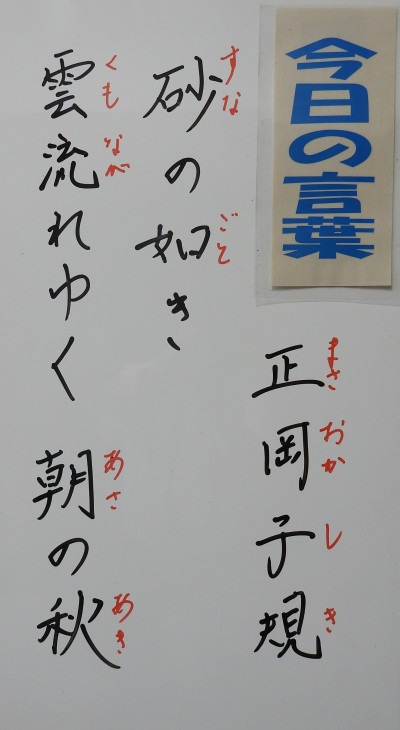 今日の言葉
正岡子規
まさ おか し き
砂の如き
すな ごと
雲流れゆく 朝の秋
くも なが あさ あき